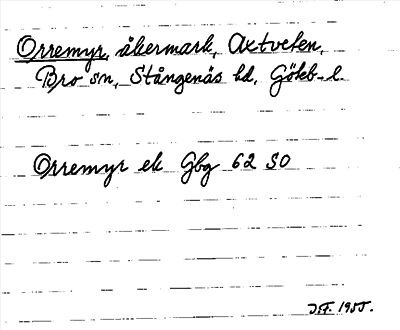 Orremyr, åkermark, Axtveten,
Bro sn, Stångenäs hd, Göteb-l.
Orremyr ek Gbg 62 SO
1955.